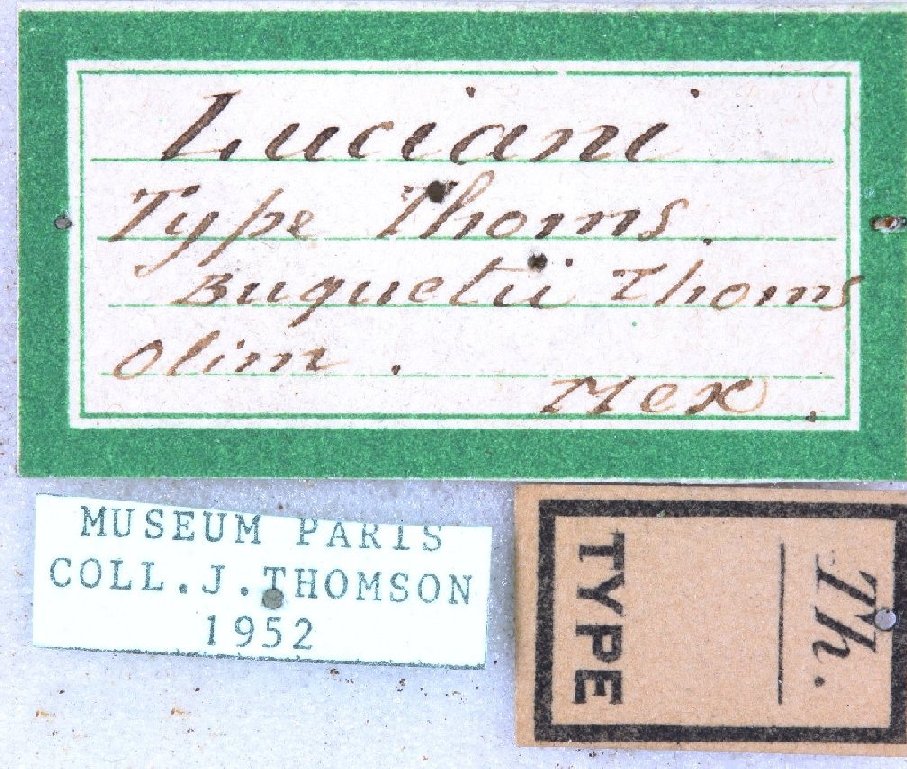 Luciani
Type Thoms.
Buquetii Thoms
Olim .
Mex .
MUSEUM PARIS
COLL.J.THOMSON
1952
Th.
TYPE